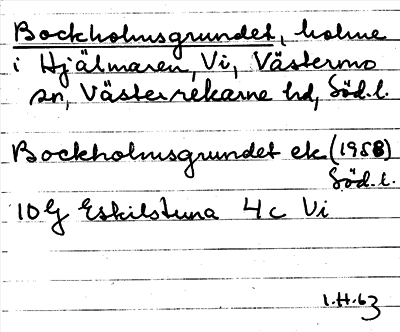 Bockholmsgrundet, holme
i Hjälmaren, Vi, Västermo
sn, Västerrekarne hd, Söd.l.
Bockholmsgrundet ek (1958)
Söd.l.
10G Eskilstuna 4c Vi
1.H.63